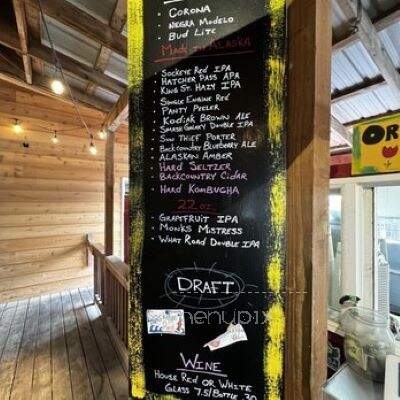 • Corona
• Negra Modelo
• Bud Lite
Made in Alaska
• Sockeye Red IPA
• Hatcher Pass APA
• King St. Hazy IPA
• Single Engine Red
• Panty Peeler
• Kodiak Brown Ale
• Smash Galaxy Double IPA
• Sun Thief Porter
• Backcountry Blueberry Ale
• Alaskan Amber
• Hard Seltzer
Backcountry Cidar
• Hard Kombucha
22 oz.
• Grapefruit IPA
• Monks Mistress
• What Road Double IPA
Draft
menupix
Wine
House Red or White
Glass 7.5/Bottle 30